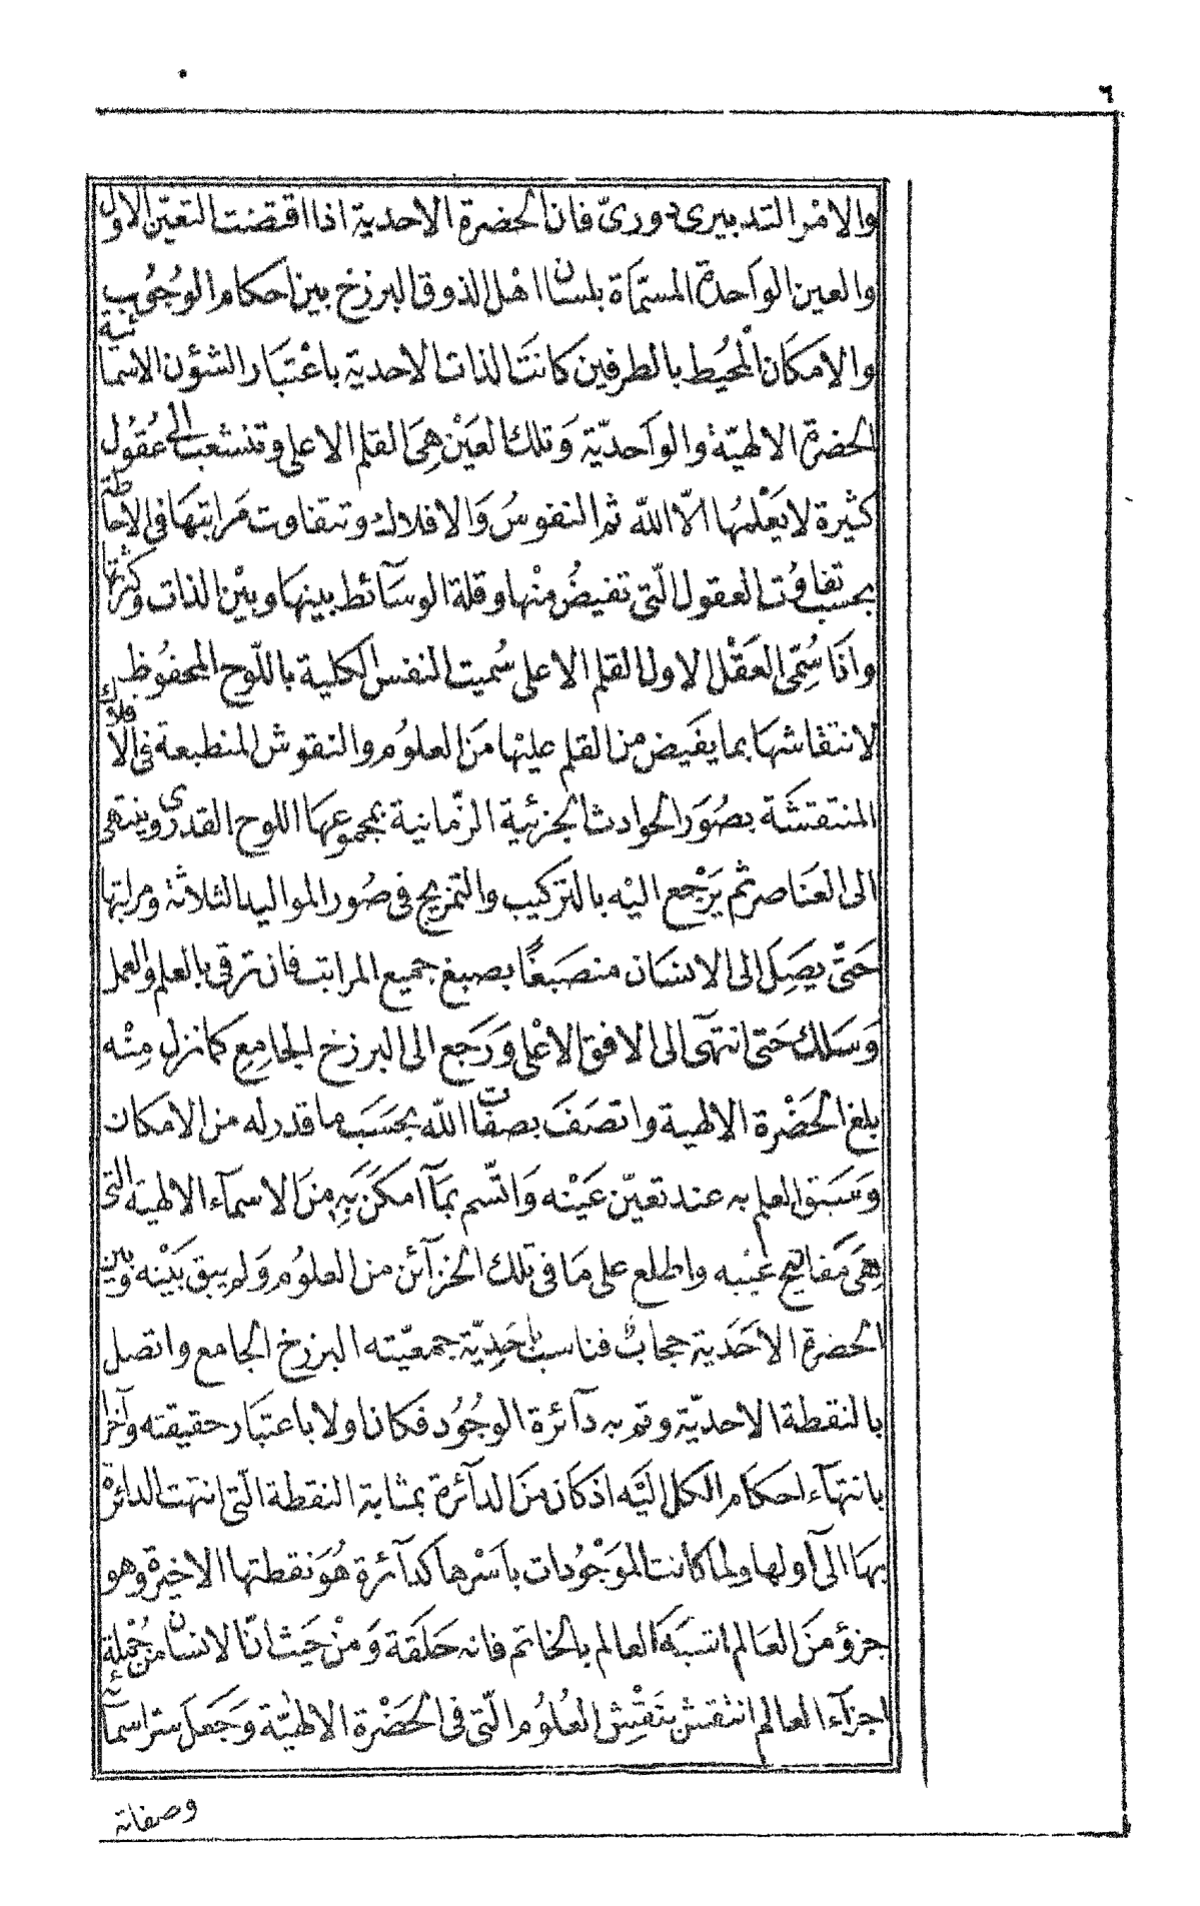 ٦
والامْر التدبيرى دورىّ فان الحضرة الاحدية اذا اقتضت التعيّن الاول
والعين الواحدة المسمّاة بلسان اهْل الذوق البرزخ بين احكام الوجُوب
والامكان المُحيط بالطرفين كانَت الذات الاحدية باعْتبَار الشؤن الاسمائية
الحضرة الالهيّة والواَحديّة وَتلك العَيْن هِىَ القلم الاعلى وتنشعب الى عقُول
كثيرة لا يَعْلمُها الّا اللّه ثم النفوسُ وَالافلاك وتتفاوت مَراتبَها فى الاحاطة
بحسب تفاوُت العقول الّتى تفيضُ منْها وقلة الوسَآئط بينهَا وبيْن الذات وكثرتها
واذَا سُمّى العَقْل الاول القلم الاعلى سُميت النفس الكلية باللّوح المحفوُظ
لانتقاشهَا بما يفَيض من القلم عليْها مَن العلوُم والنقوش المنطبعة فى الافلاك
المنتقشَة بصُوَر الحوادث الجزئية الزّمانية بمجموعهَا اللوح القدرى وينتهى
الى العنَاصر ثم يَرْجع اليْه بالتركيب والتمزيج فى صُور المواليد الثلاثة ومراتبها
حَتّى يصِلَ الى الانسَان منصَبغًا بصبغ جميع المراتب فان ترقى بالعلم والعمل
وَسَلك حَتى انتهَى الى الافق الاعْلى وَرَجع الى البرزخ الجامِع كما نزل مِنْه
بلغ الحَضْرة الالهية واتصَفَ بصفات اللّه بحَسَب ما قدر له من الامكان
وَسَبَق العلم به عند تعيّن عَيْنه وَاتّسم بمَآ امكَن بَه مِنَ الاسمآء الالهية التى
هىَ مَفاتيح غيْبه واطلع على مَا فى تلك الخزآئن من العلوُم وَلم يبق بَيْنه وَبين
الحضرة الاحَدية حجابٌ فناسب باحَدِيّة جمعيّته البرزخ الجامع واتصل
بالنقطة الاحديّة وتم به دآئرة الوجُوُد فكان اولا باعتبَار حقيقته وآخرا
بانتهآء احكام الكل اليَه اذ كان مِنَ الدآئرة بمثابة النقطة الّتى انتهت الدائرة
بهَا الى آولها ولما كانت الموَجُودات باَسْرها كدآئرة هُوَ نقطتها الاخيرة وهو
جزؤ مِنَ العَالم اشبَهَ العالم بالخاتم فانه حَلقة وَمنْ حَيث انّ الانسان من جُمْلة
اجزآء العالم انتقش بنَقْشِ العُلوُم الّتى فى الحَضْرة الالهيّة وَجَعلَ سرّ اسمآئه
وصفاته